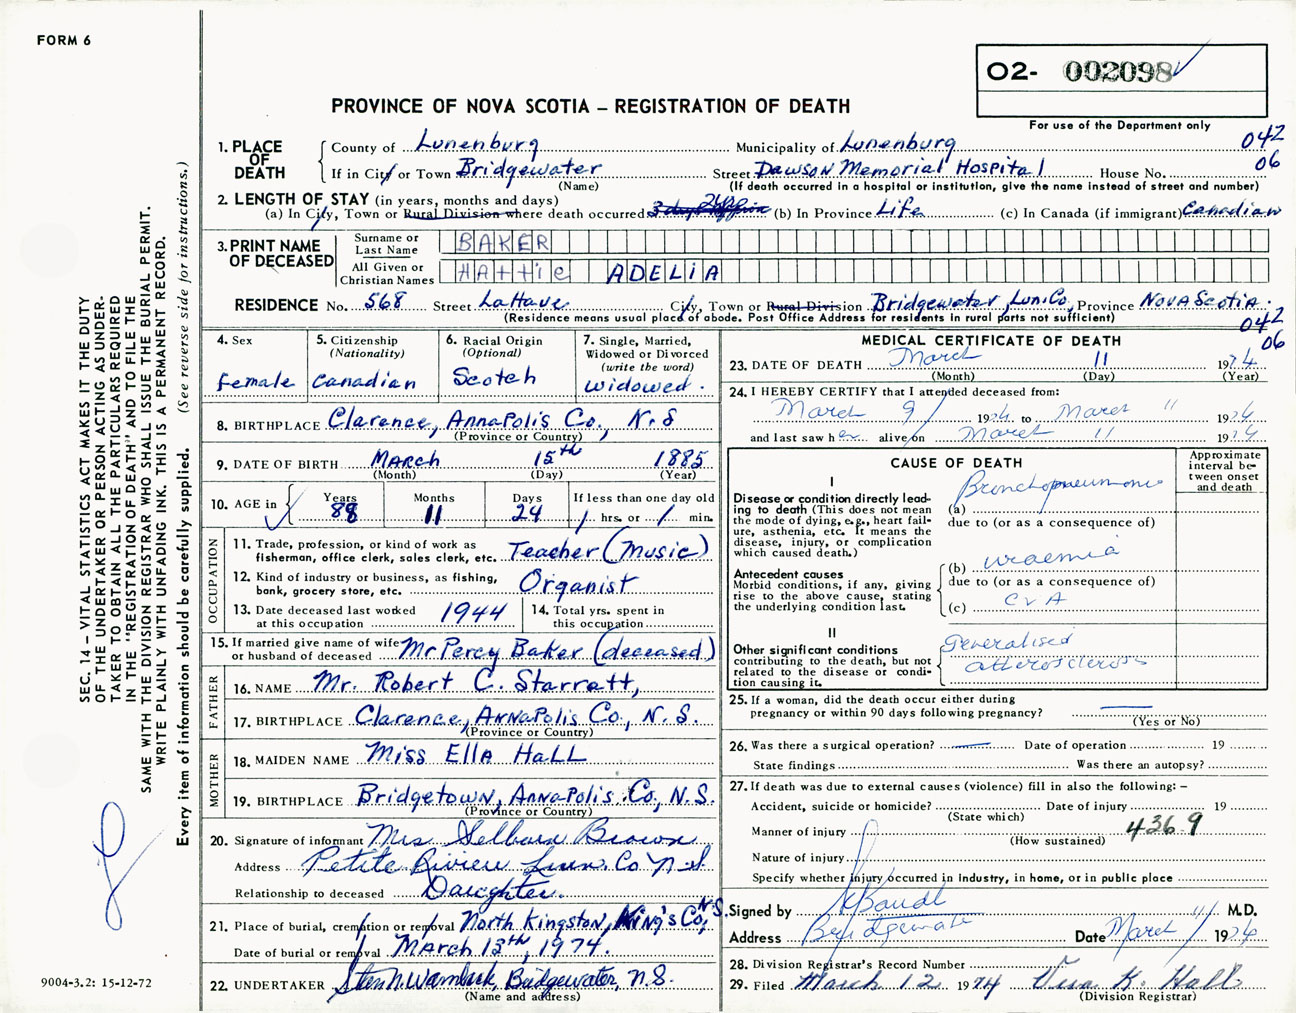 FORM 6
O2- 002098
For use of the Department only
PROVINCE OF NOVA SCOTIA – REGISTRATION OF DEATH
042
06
1. PLACE OF DEATH
County of Lunenburg Municipality of Lunenburg
If in City or Town Bridgewater Street Dawson Memorial Hospital House No.
(Name) (If death occurred in a hospital or institution, give the name instead of street and number)
2. LENGTH OF STAY (in years, months and days)
(a) In City, Town or Rural Division where death occurred (b) In Province Life (c) In Canada (if immigrant) Canadian
3. PRINT NAME OF DECEASED
Surname or Last Name BAKER
All Given or Christian Names HAttie ADELiA
RESIDENCE No. 568 Street LaHave City, Town or Rural Division Bridgewater, Lun.Co, Province Nova Scotia.
(Residence means usual place of abode. Post Office Address for residents in rural parts not sufficient)
042
06
4. Sex
female
5. Citizenship
(Nationality)
Canadian
6. Racial Origin
(Optional)
Scotch
7. Single, Married,
Widowed or Divorced
(write the word)
widowed.
8. BIRTHPLACE Clarence, Annapolis Co., N.S
(Province or Country)
9. DATE OF BIRTH March 15th 1885
(Month) (Day) (Year)
10. AGE in
Years Months Days If less than one day old
88 11 24 / hrs. or / min.
OCCUPATION
11. Trade, profession, or kind of work as
fisherman, office clerk, sales clerk, etc. Teacher (Music)
12. Kind of industry or business, as fishing,
bank, grocery store, etc. Organist
13. Date deceased last worked
at this occupation 1944
14. Total yrs. spent in
this occupation
15. If married give name of wife
or husband of deceased Mr Percy Baker (deceased)
FATHER
16. NAME Mr. Robert C. Starratt,
17. BIRTHPLACE Clarence, Annapolis Co., N.S.
(Province or Country)
MOTHER
18. MAIDEN NAME Miss Ella Hall
19. BIRTHPLACE Bridgetown, Annapolis Co, N.S.
(Province or Country)
20. Signature of informant Mrs Selburn Brown
Address Petite Riviere Lun. Co N.S
Relationship to deceased Daughter.
21. Place of burial, cremation or removal North Kingston, King's Co, N.S.
Date of burial or removal March 13th, 1974.
22. UNDERTAKER Bridgewater, N.S.
(Name and address)
MEDICAL CERTIFICATE OF DEATH
23. DATE OF DEATH March 11 1974
(Month) (Day) (Year)
24. I HEREBY CERTIFY that I attended deceased from:
March 9 1974 to March 11 1974
and last saw her alive on March 11 1974
CAUSE OF DEATH
Approximate interval between onset and death
I
Disease or condition directly lead-
ing to death (This does not mean
the mode of dying, e.g., heart fail-
ure, asthenia, etc. It means the
disease, injury, or complication
which caused death.)
(a) Bronchopneumonia
due to (or as a consequence of)
Antecedent causes
Morbid conditions, if any, giving
rise to the above cause, stating
the underlying condition last.
(b) uraemia
due to (or as a consequence of)
(c) CVA
II
Other significant conditions
contributing to the death, but not
related to the disease or condi-
tion causing it.
Generalised
atherosclerosis
25. If a woman, did the death occur either during
pregnancy or within 90 days following pregnancy?
(Yes or No)
26. Was there a surgical operation? Date of operation 19
State findings Was there an autopsy?
27. If death was due to external causes (violence) fill in also the following: –
Accident, suicide or homicide? Date of injury 19
(State which)
Manner of injury 436.9
(How sustained)
Nature of injury
Specify whether injury occurred in industry, in home, or in public place
Signed by M.D.
Address Bridgewater Date March 11 1974
28. Division Registrar's Record Number
29. Filed March 12 1974 Vera K. Hall
(Division Registrar)
SEC. 14 – VITAL STATISTICS ACT MAKES IT THE DUTY
OF THE UNDERTAKER OR PERSON ACTING AS UNDER-
TAKER TO OBTAIN ALL THE PARTICULARS REQUIRED
IN THE "REGISTRATION OF DEATH" AND TO FILE THE
SAME WITH THE DIVISION REGISTRAR WHO SHALL ISSUE THE BURIAL PERMIT.
WRITE PLAINLY WITH UNFADING INK. THIS IS A PERMANENT RECORD.
Every item of information should be carefully supplied. (See reverse side for instructions.)
9004-3.2: 15-12-72